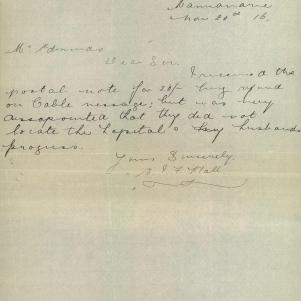 Nov 20th 16.
Mr
Dear Sir.
I received the
postal note for 20/- being refund
on Cable message; but was very
dissapointed that they did not
locate the hospital & my husbands
progress.
Yours Sincerely
Hall